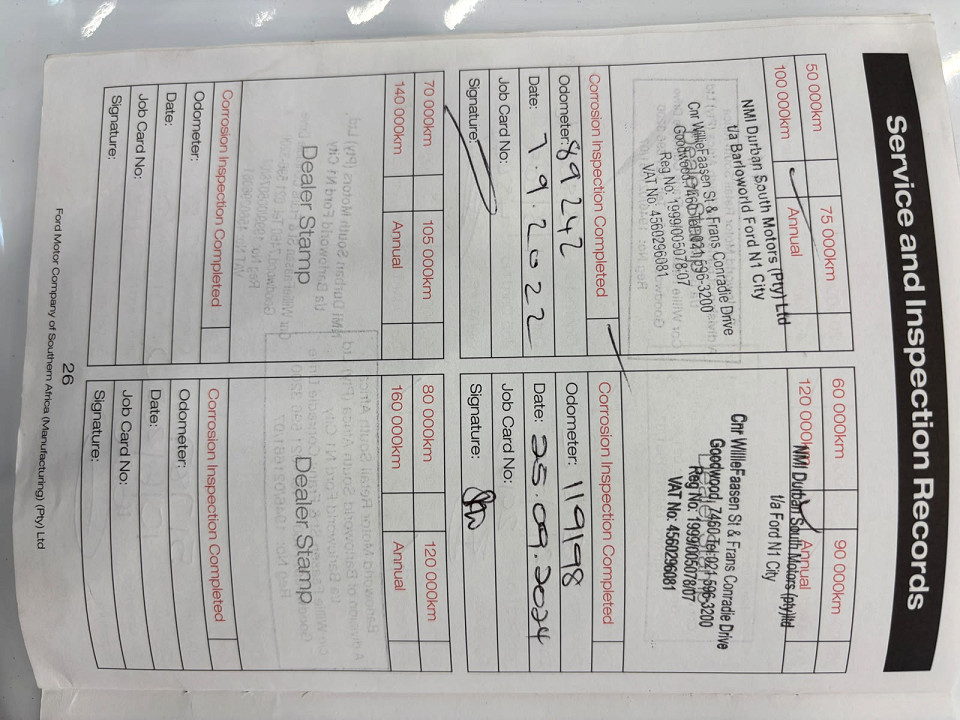 Service and Inspection Records
50 000km
75 000km
100 000km
Annual
NMI Durban South Motors (Pty) Ltd
t/a Barloworld Ford N1 City
Cnr WillieFaasen St & Frans Conradie Drive
Goodwood, 7460 Tel: 021 596-3200
Reg No: 1999/005078/07
VAT No: 4560296081
Corrosion Inspection Completed
Odometer: 89242
Date: 7.9.2022
Job Card No:
Signature:
60 000km
90 000km
120 000km
Annual
NMI Durban South Motors (pty)ltd
t/a Ford N1 City
Cnr WillieFaasen St & Frans Conradie Drive
Goodwood, 7460 Tel: 021-596-3200
Reg No: 1999/005078/07
VAT No: 4560296081
Corrosion Inspection Completed
Odometer: 119198
Date: 25.09.2024
Job Card No:
Signature:
70 000km
105 000km
140 000km
Annual
Dealer Stamp
Corrosion Inspection Completed
Odometer:
Date:
Job Card No:
Signature:
80 000km
120 000km
160 000km
Annual
Dealer Stamp
Corrosion Inspection Completed
Odometer:
Date:
Job Card No:
Signature:
26
Ford Motor Company of Southern Africa (Manufacturing) (Pty) Ltd